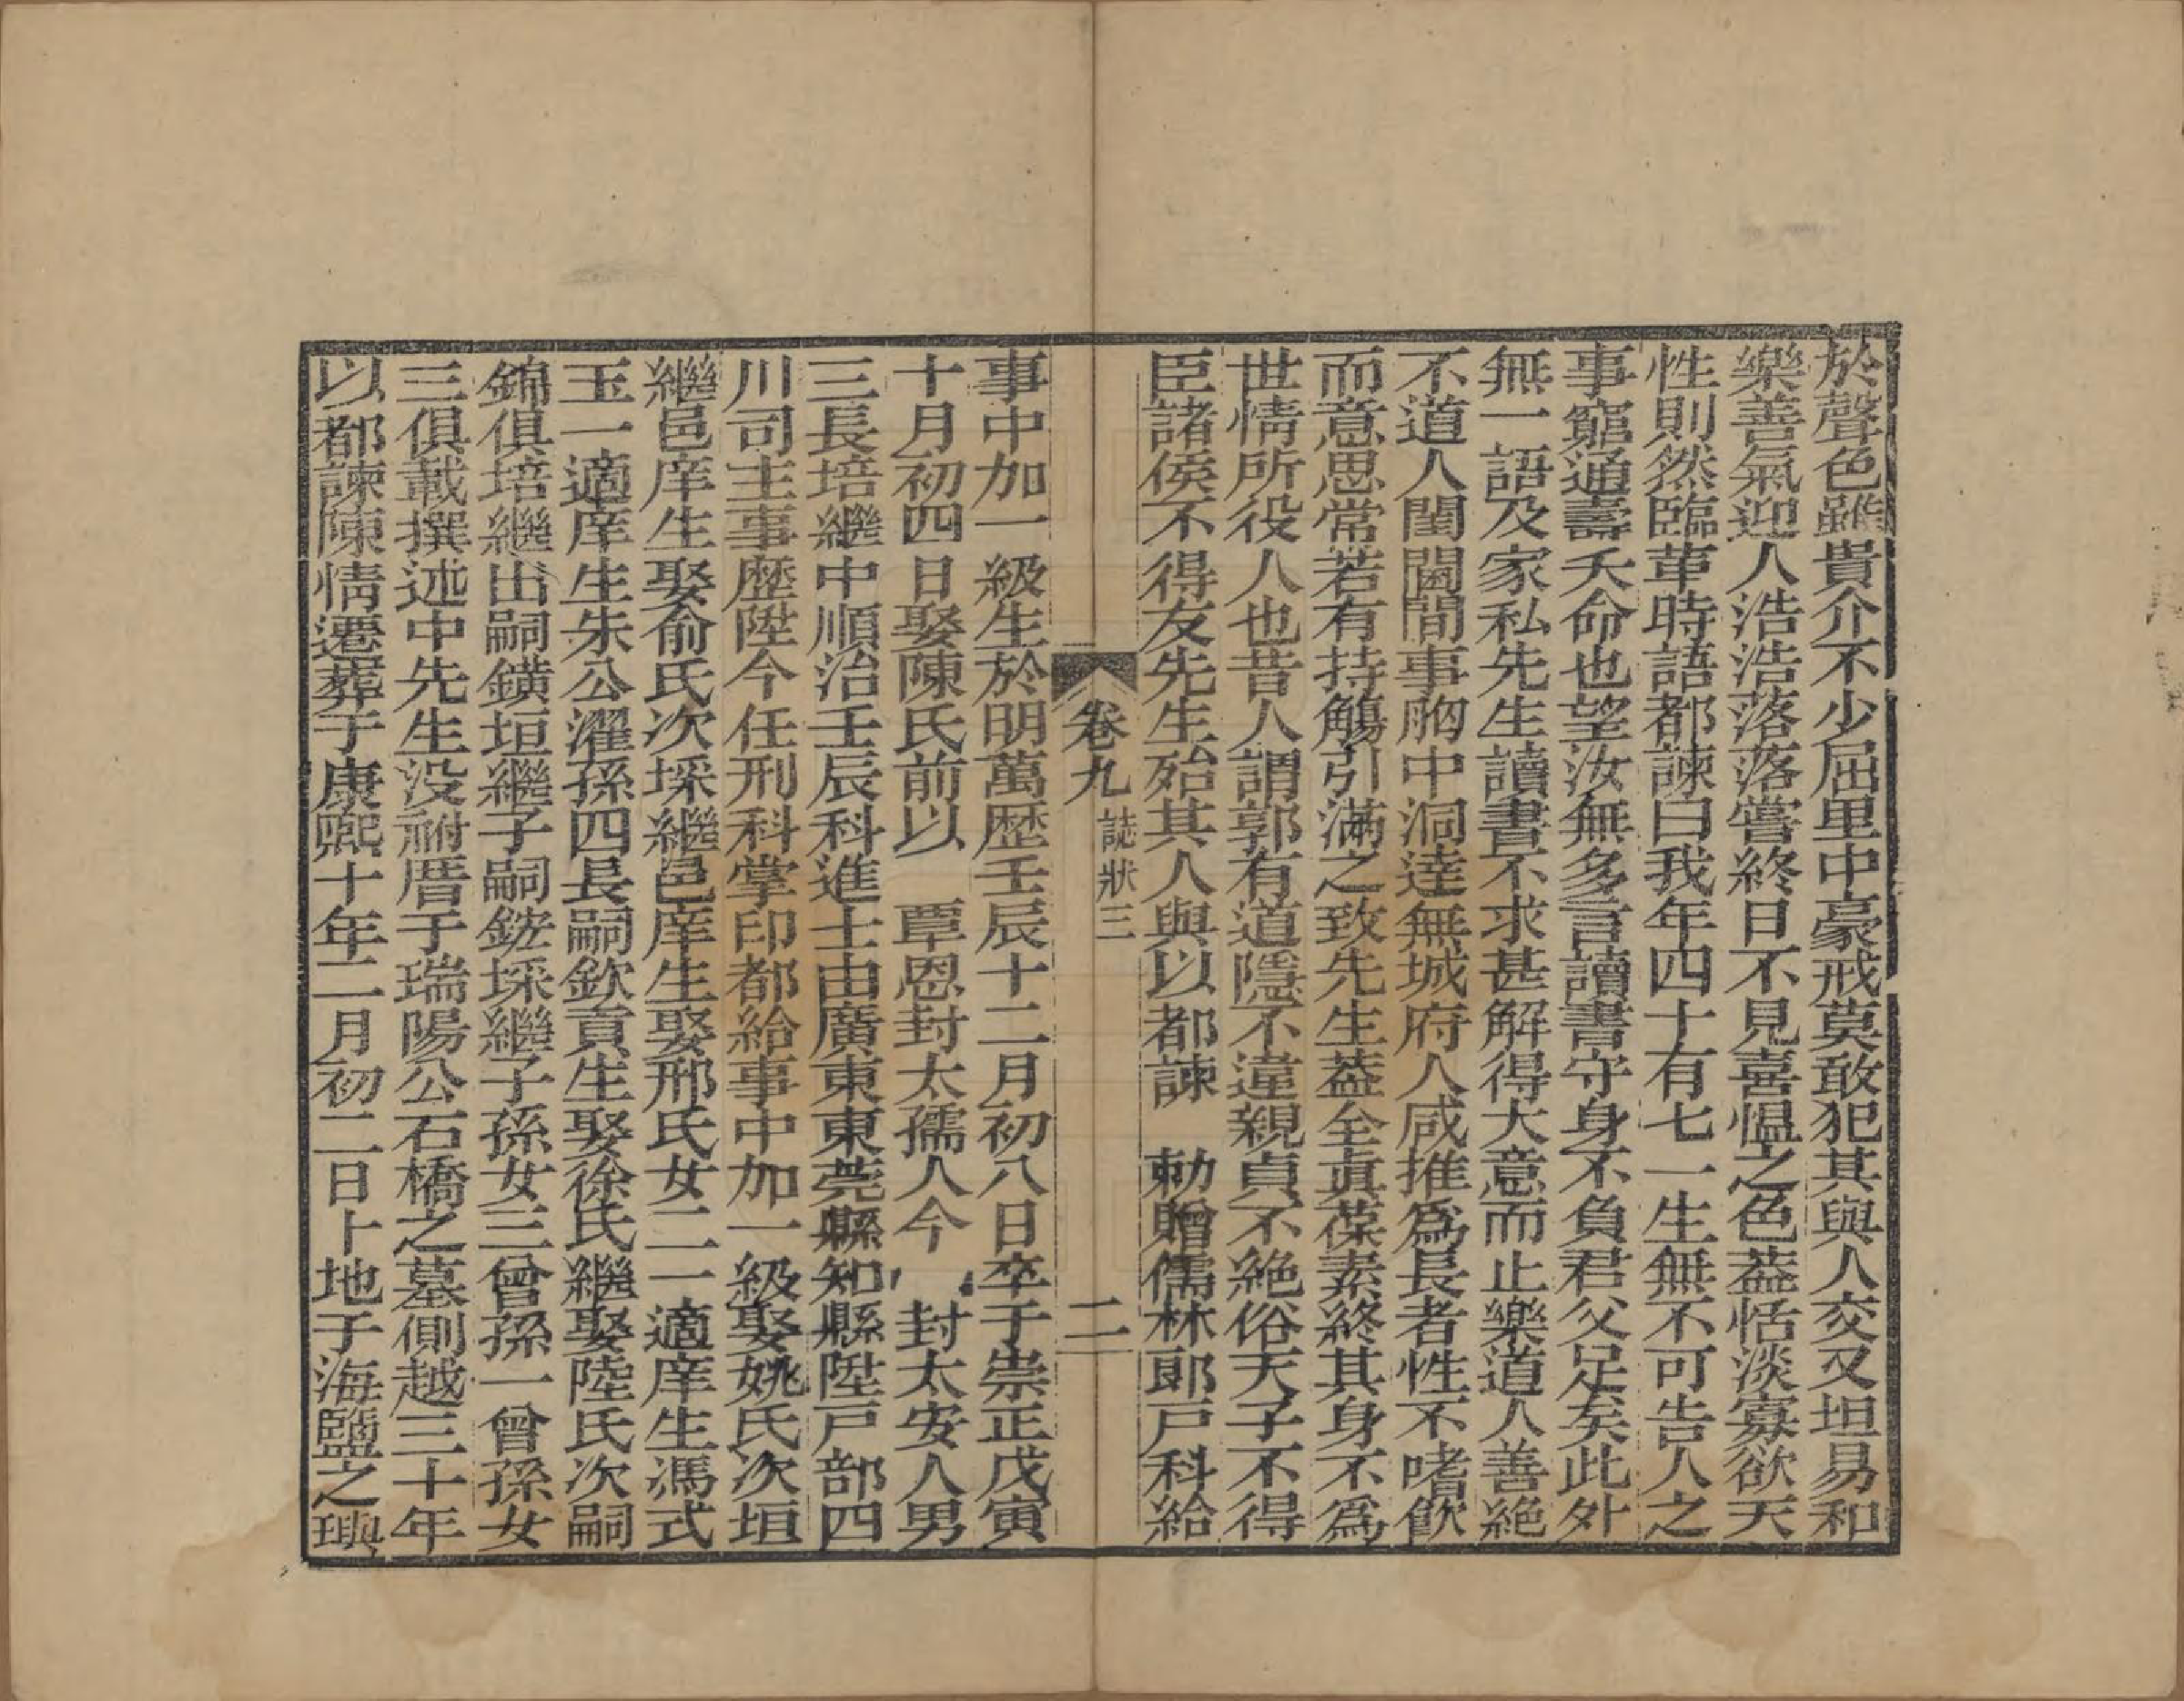 於聲色雖貴介不少屈里中豪戒莫敢犯其與人交又坦易和
樂善氣迎人浩浩落落嘗終日不見喜愠之色葢恬淡寡欲天
性則然臨革時語都諫曰我年四十有七一生無不可告人之
事窮通壽夭命也望汝無多言讀書守身不負君父足矣此外
無一語及家私先生讀書不求甚解得大意而止樂道人善絶
不道人閨閫間事胷中洞達無城府人咸推爲長者性不嗜飮
而意思常若有持觴引滿之致先生葢全眞葆素終其身不爲
世情所役人也昔人謂郭有道隱不違親貞不絶俗天子不得
臣諸侯不得友先生殆其人與以都諫　勅贈儒林郎戸科給
卷九　誌狀三　二
事中加一級生於明萬歴壬辰十二月初八日卒于崇正戊寅
十月初四日娶陳氏前以　覃恩封太孺人今　封太安人男
三長培繼中順治壬辰科進士由廣東東莞縣知縣陞戸部四
川司主事歴陞今任刑科掌印都給事中加一級娶姚氏次垣
繼邑庠生娶俞氏次埰繼邑庠生娶邢氏女二一適庠生馮式
玉一適庠生朱公濯孫四長嗣欽貢生娶徐氏繼娶陸氏次嗣
錦俱培繼出嗣鐄垣繼子嗣鍦埰繼子孫女三曾孫一曾孫女
三俱載撰述中先生没祔厝于瑞陽公石橋之墓側越三十年
以都諫陳情遷葬于康熙十年二月初二日卜地于海鹽之璵